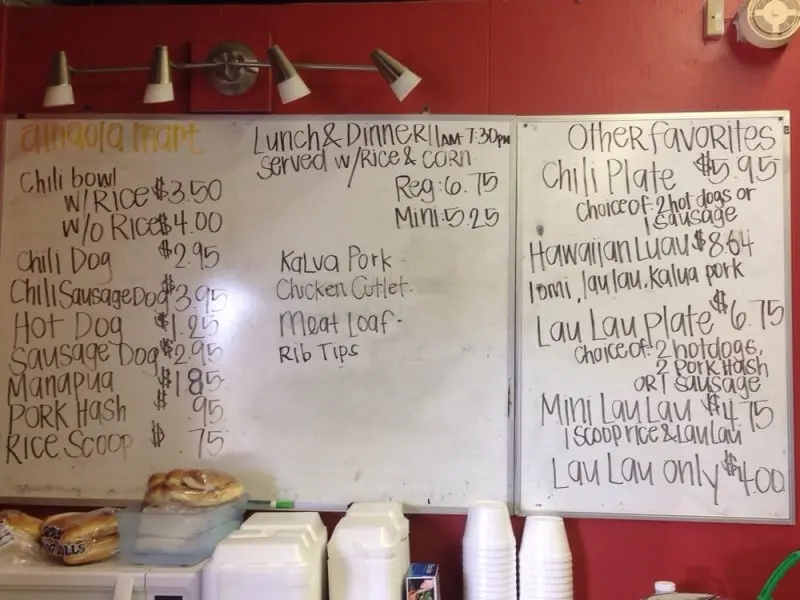 ainaola mart
Chili bowl
w/Rice $3.50
w/o Rice $4.00
Chili Dog $2.95
Chili Sausage Dog $3.95
Hot Dog $1.25
Sausage Dog $2.95
Manapua $1.85
Pork Hash $ .95
Rice Scoop $ .75
Lunch & Dinner 11AM-7:30pm
Served w/Rice & Corn
Reg: 6.75
Mini: 5.25
Kalua Pork -
Chicken Cutlet -
Meat Loaf -
Rib Tips
Other favorites
Chili Plate $5.95
choice of: 2 hot dogs or
1 sausage
Hawaiian Luau $8.64
lomi, lau lau, kalua pork
Lau Lau Plate $6.75
choice of: 2 hotdogs,
2 Pork Hash
OR 1 Sausage
Mini Lau Lau $4.75
1 scoop rice & Lau Lau
Lau Lau only $4.00